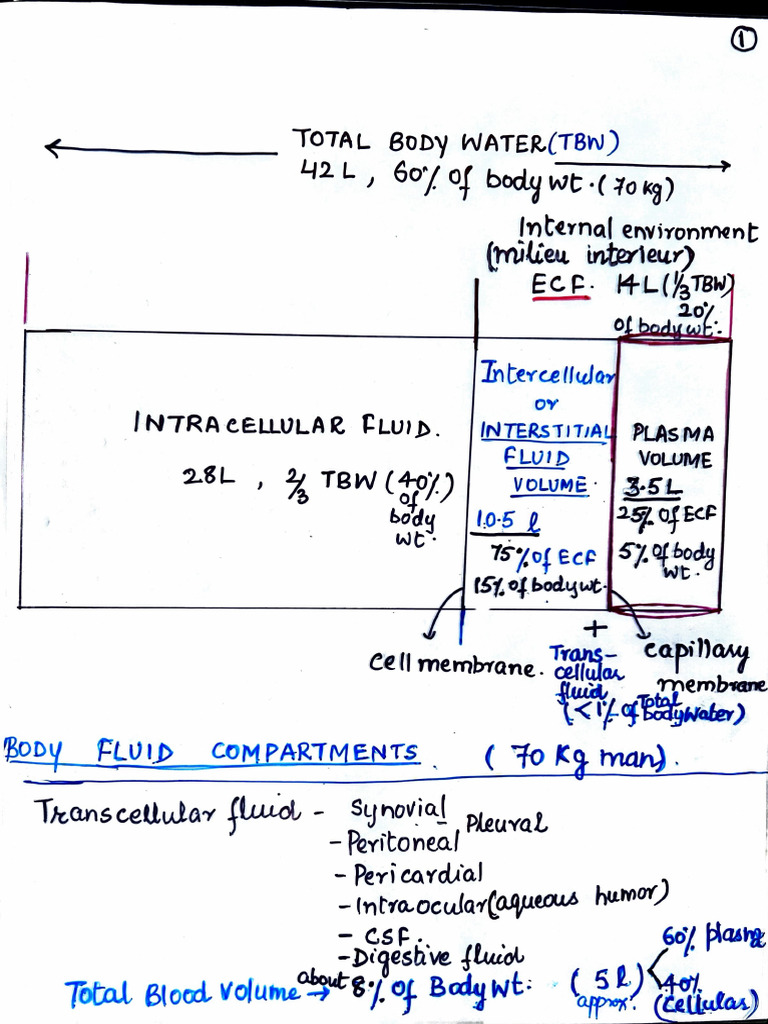 ①
TOTAL BODY WATER (TBW)
42 L , 60% of body wt. (70 kg)
Internal environment
(milieu interieur)
ECF. 14 L (1/3 TBW)
20%
of body wt.
INTRACELLULAR FLUID.
28L , 2/3 TBW (40%)
of
body
wt.
Intercellular
or
INTERSTITIAL
FLUID
VOLUME.
10.5 l
75% of ECF
15% of body wt.
PLASMA
VOLUME
3.5 L
25% of ECF
5% of body
wt.
cell membrane.
+
Trans-
cellular
fluid
(<1% of Total
body water)
capillary
membrane
BODY FLUID COMPARTMENTS. (70 Kg man).
Transcellular fluid - Synovial
Pleural
- Peritoneal
- Pericardial
- Intraocular (aqueous humor)
- CSF.
- Digestive fluid
Total Blood Volume → about 8% of Body Wt: (5 l)
approx.
60% plasma
40%
(cellular)